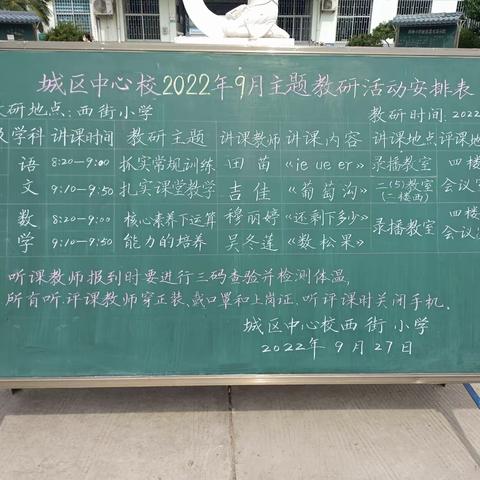 城区中心校2022年9月主题教研活动安排表
教研地点:西街小学 教研时间:2022
及学科 讲课时间 教研主题 讲课教师 讲课内容 讲课地点 评课地
语文 8:20—9:00 抓实常规训练 田苗 《ie ue er》 录播教室 四楼会议
9:10—9:50 扎实课堂教学 吉佳 《葡萄沟》 二(5)教室(二楼西)
数学 8:20—9:00 核心素养下运算 穆丽婷 《还剩下多少》 录播教室 四楼会议
9:10—9:50 能力的培养 吴冬莲 《数松果》
听课教师报到时要进行三码查验并检测体温,
所有听.评课教师穿正装、戴口罩和上岗证、听评课时关闭手机。
城区中心校西街小学
2022年9月27日